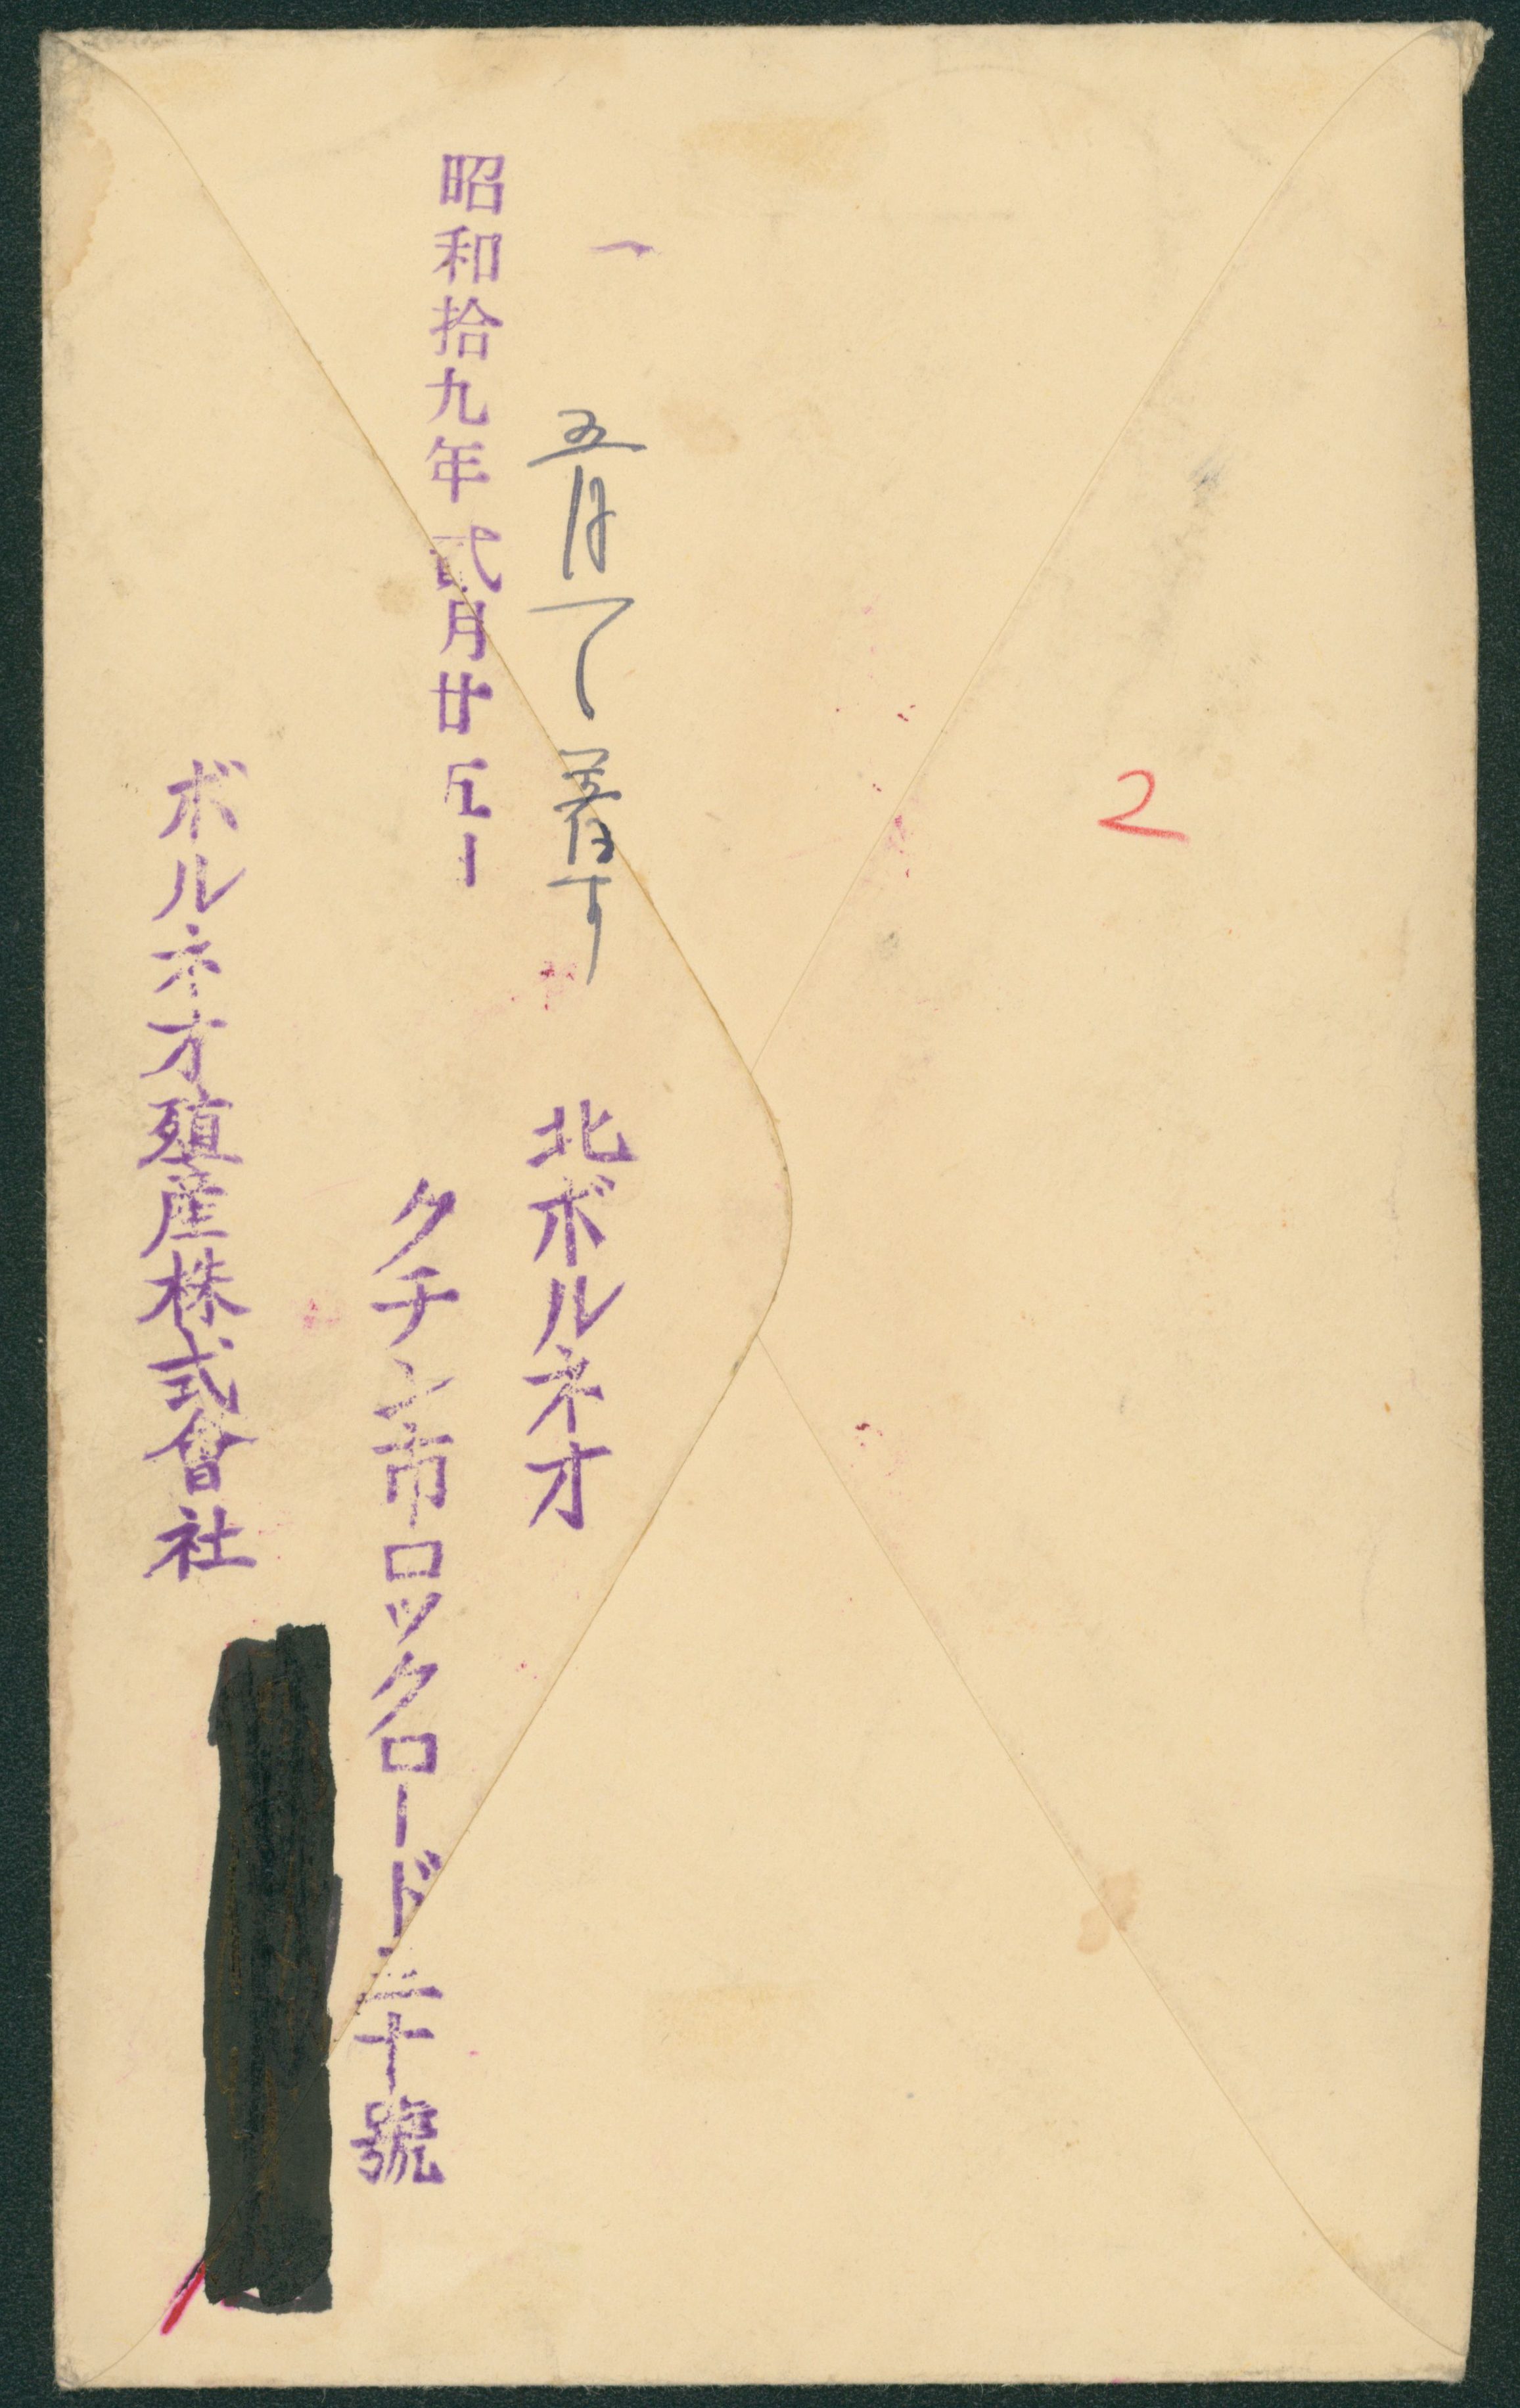 2
一
五月一着す
昭和拾九年弐月廿五
北ボルネオ
クチン市ロックロード三十號
ボルネオ殖産株式會社